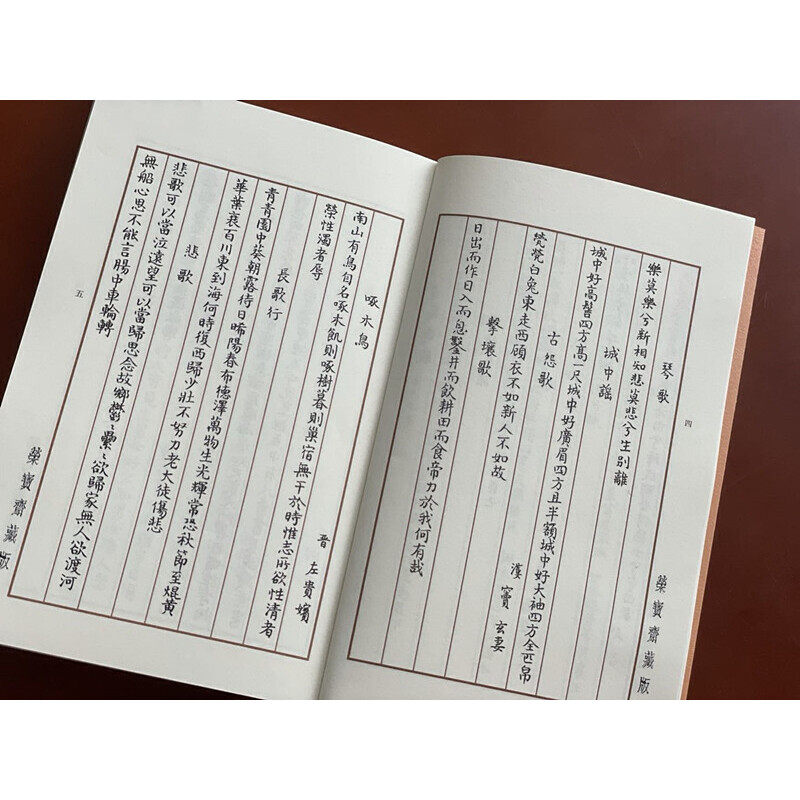 四
榮寶齋藏版
琴歌
樂莫樂兮新相知悲莫悲兮生別離
城中謠
城中好高髻四方高一尺城中好廣眉四方且半額城中好大袖四方全匹帛
古怨歌 漢 竇玄妻
煢煢白兔東走西顧衣不如新人不如故
擊壤歌
日出而作日入而息鑿井而飲耕田而食帝力於我何有哉
啄木鳥 晉 左貴嬪
南山有鳥自名啄木飢則啄樹暮則巢宿無干於時惟志所欲性清者
榮性濁者辱
長歌行
青青園中葵朝露待日晞陽春布德澤萬物生光輝常恐秋節至焜黃
華葉衰百川東到海何時復西歸少壯不努力老大徒傷悲
悲歌
悲歌可以當泣遠望可以當歸思念故鄉鬱〻纍〻欲歸家無人欲渡河
無船心思不能言腸中車輪轉
五
榮寶齋藏版